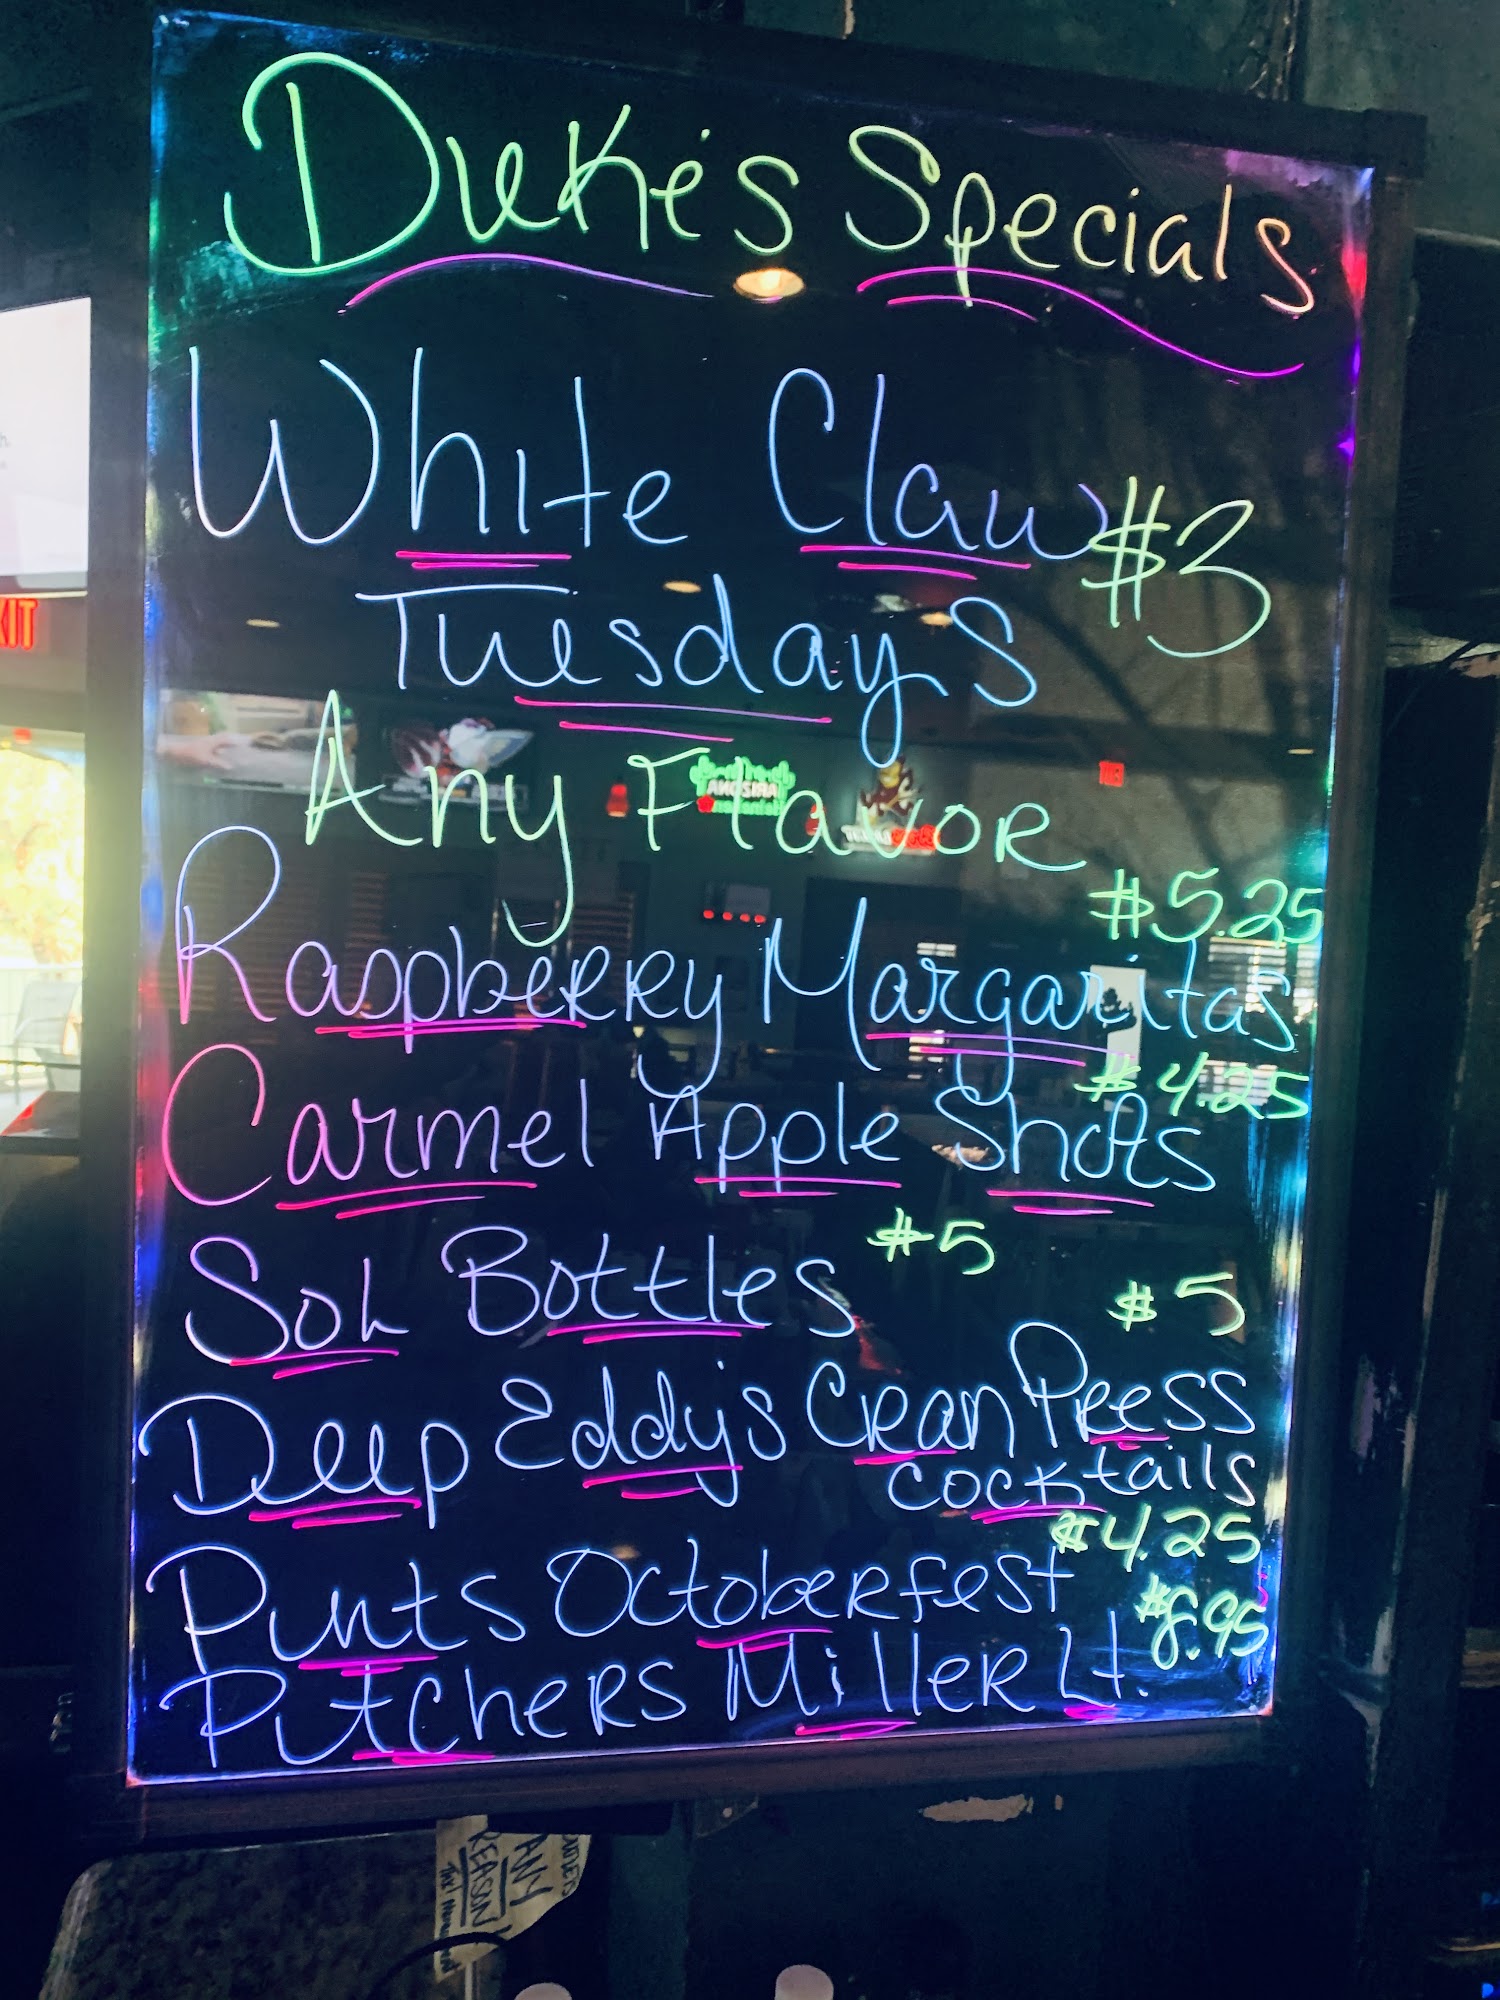 Duke's Specials
White Claw $3
Tuesdays
Any Flavor
$5.25
Raspberry Margaritas
$4.25
Carmel Apple Shots
Sol Bottles $5
$5
Deep Eddy's Cran Press
cocktails
$4.25
Pints Octoberfest
$8.95
Pitchers Miller Lt.
XIT
ARIZONA
ANY
REASON